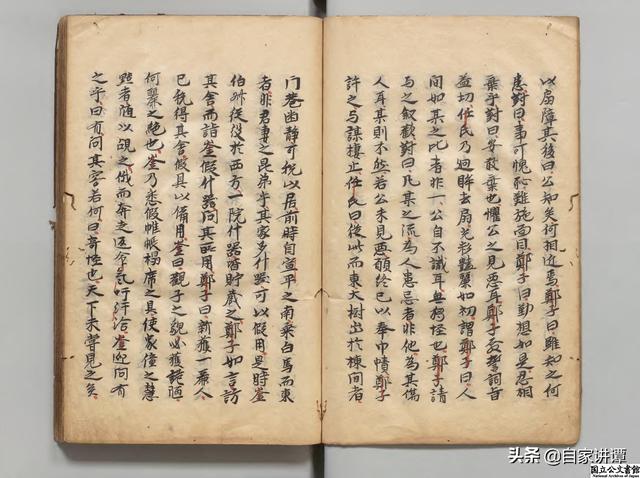 以扇障其後曰公知矣何相近焉鄭子曰雖知之何
患對曰事可愧恥難施面目鄭子曰勤想如是忍相
棄乎對曰安敢棄也懼公之見惡耳鄭子發誓詞旨
益切任氏乃迴眸去扇光彩豔麗如初謂鄭子曰人
間如某之比者非一公自不識耳無獨怪也鄭子請
与之叙歡對曰凡某之流為人患忌者非他為其傷
人耳某則不然若公未見惡願終己以奉巾幘鄭子
許之与謀棲止任氏曰從此而東大樹出於棟間者
门巷幽静可税以居前時自宣平之南乘白馬而東
者非君妻之昆弟乎其家多什器可以假用是時崟
伯叔從役於西方一院什器皆貯藏之鄭子如言訪
其舍而詣崟假什器問其所用鄭子曰新獲一麗人
已税得其舍假具以備用崟曰觀子之貌必獲詭陋
何麗之絶也崟乃悉假帷帳榻席之具使家僮之慧
黠者隨以覘之俄而奔走返命氣吁汗洽崟迎問有
之乎曰有問其容若何曰奇怪也天下未嘗見之矣
头条 @自家讲谭
国立公文書館
National Archives of Japan